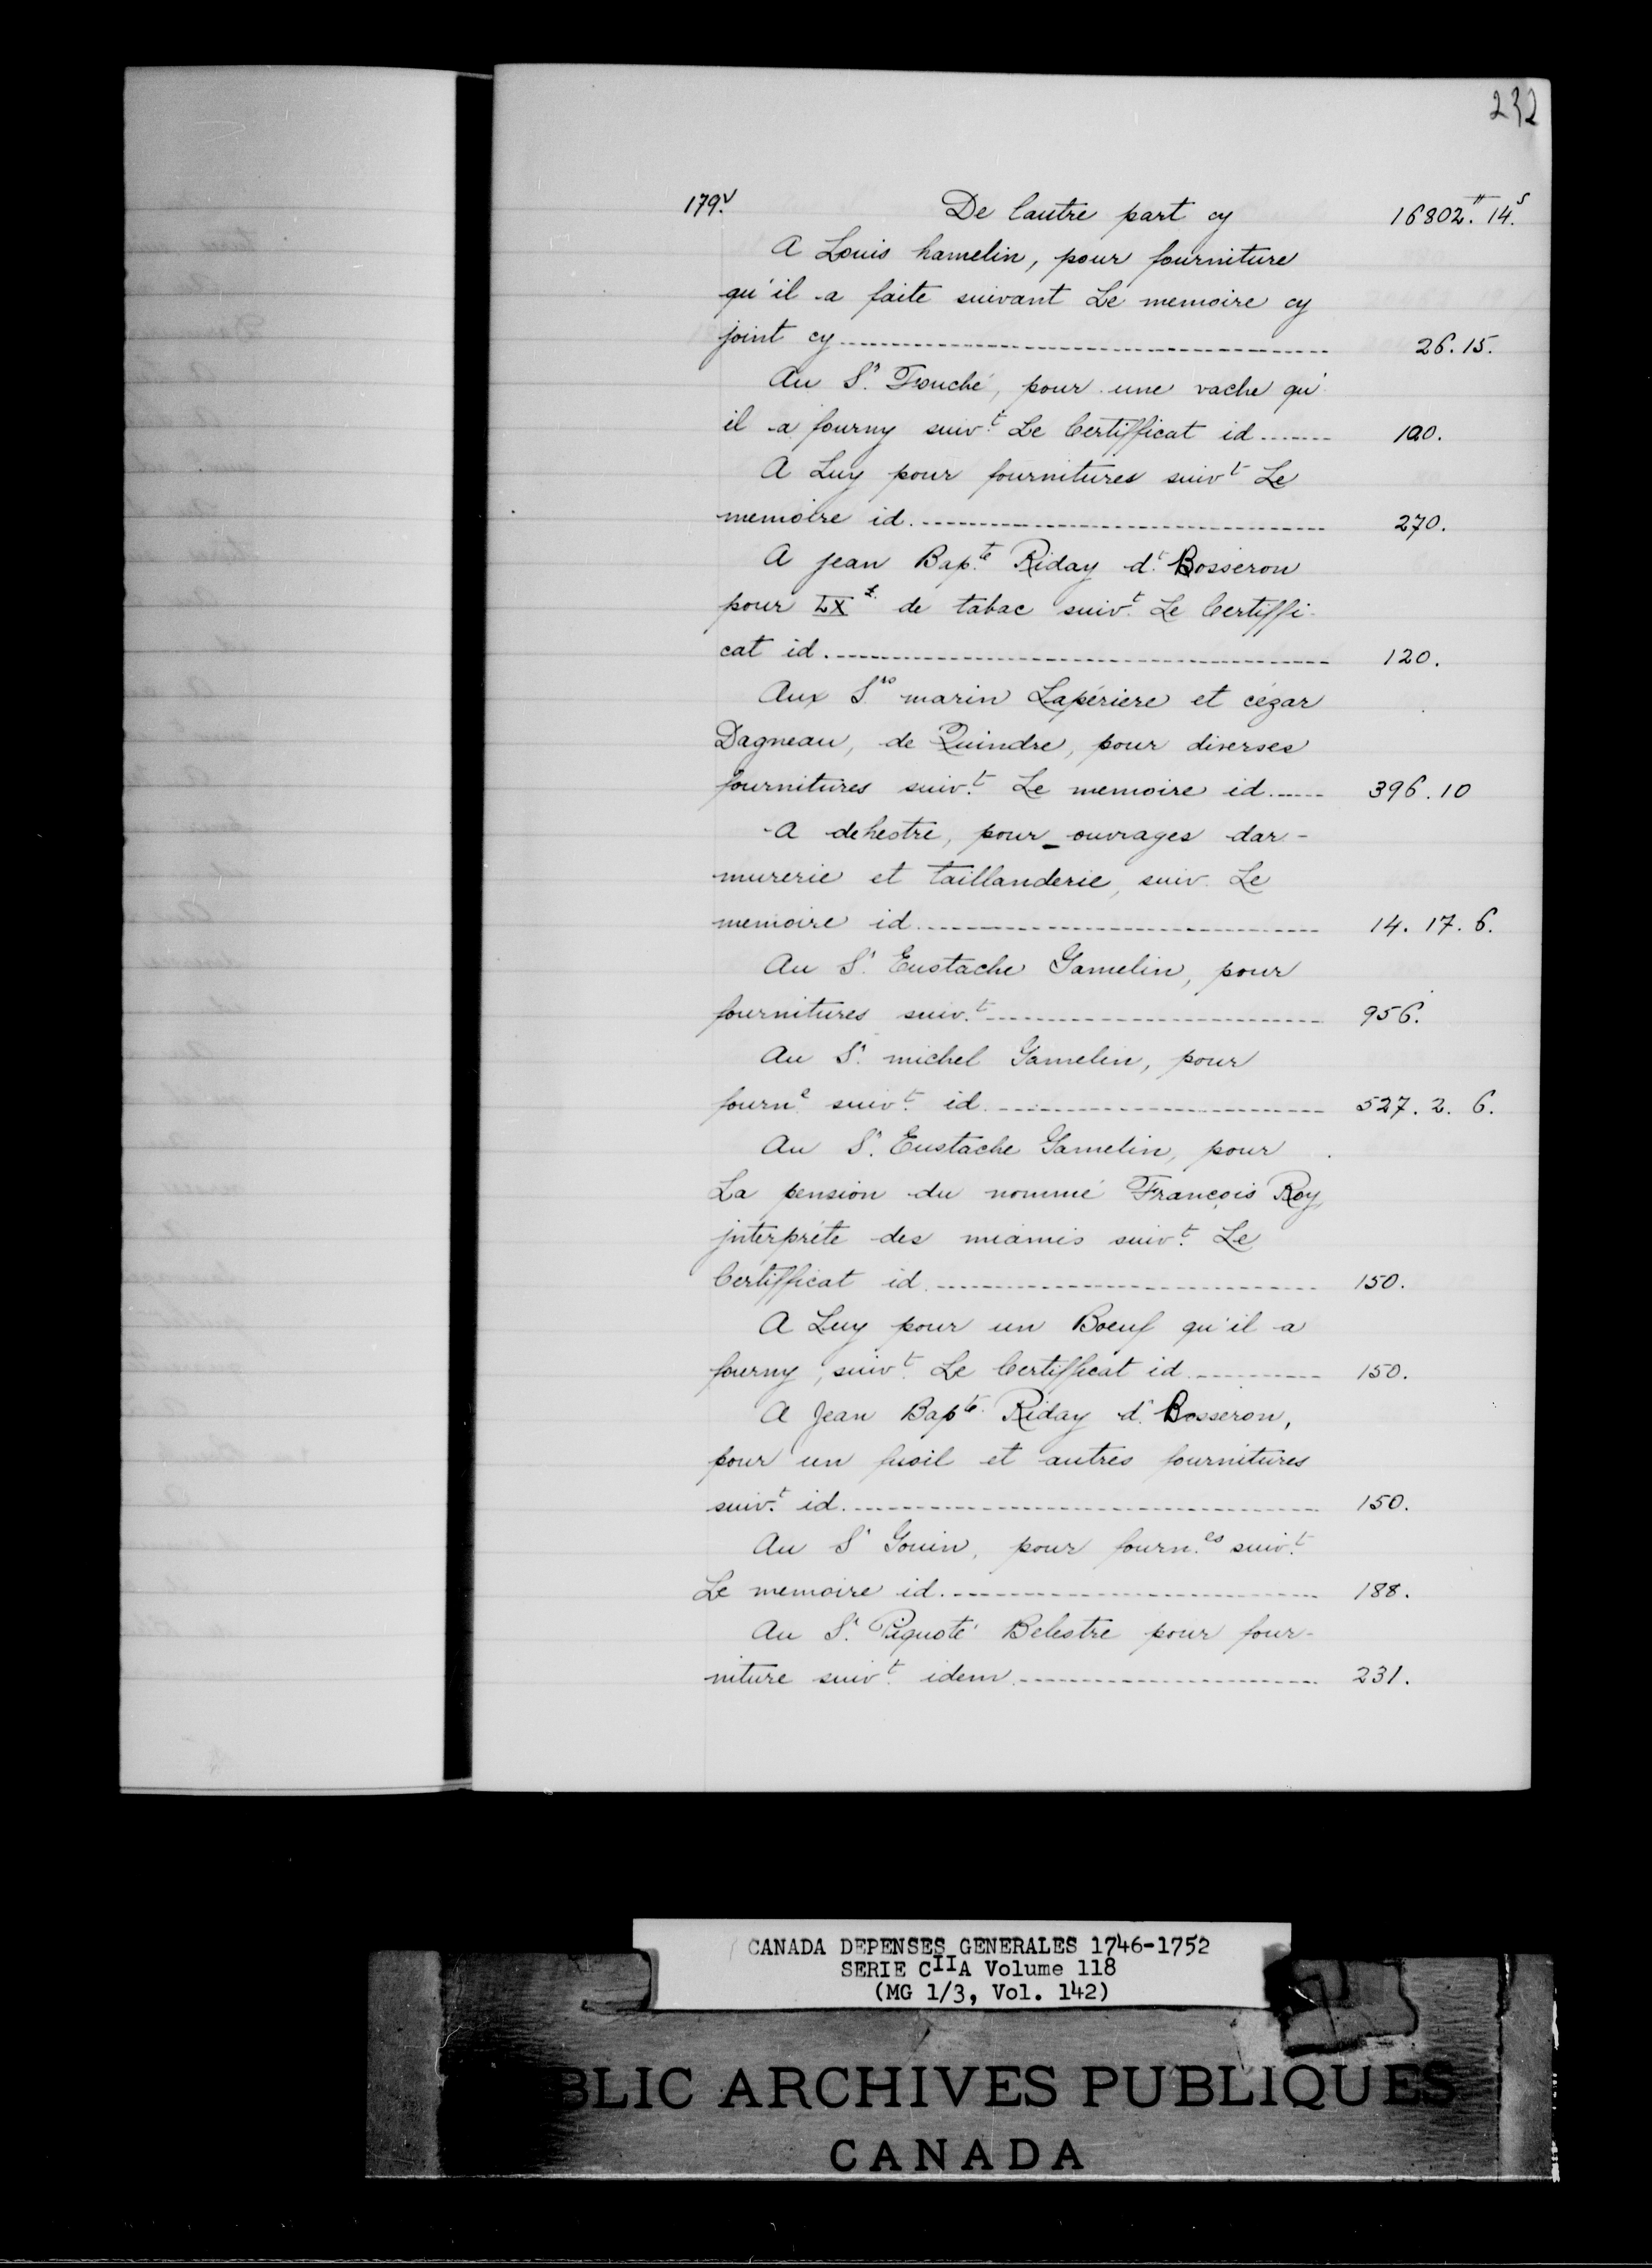 232
179v. De lautre part cy 16802tt. 14s.
A Louis hamelin, pour fourniture
qu'il a faite suivant Le memoire cy
joint cy 26.15.
Au Sr. Fouché, pour une vache qu'
il a fourny suivt. Le Certifficat id 100.
A Luy pour fournitures suivt Le
memoire id. 270.
A jean Bap.te Riday dt. Bosseron
pour LX £. de tabac suivt. Le Certiffi-
cat id. 120.
Aux Srs marin Lapériere et cézar
Dagneau, de Quindre, pour diverses
fournitures suivt. Le memoire id. 396.10
A dehestre, pour ouvrages dar-
murerie et taillanderie, suiv. Le
memoire id. 14. 17. 6.
Au Sr. Eustache Gamelin, pour
fournitures suiv.t 956.
Au Sr. michel Gamelin, pour
fourne. suivt. id. 527. 2. 6.
Au Sr. Eustache Gamelin, pour
La pension du nommé François Roy,
jnterpréte des miamis suivt. Le
Certifficat id. 150.
A Luy pour un Boeuf qu'il a
fourny, suivt. Le Certifficat id 150.
A Jean Bapte. Riday dt. Bosseron,
pour un fusil et autres fournitures
suiv.t id. 150.
Au Sr Gouin, pour fourn.es suiv.t
Le memoire id. 188.
Au Sr. Piquoté Belestre pour four-
niture suivt. idem 231.
CANADA DEPENSES GENERALES 1746-1752
SERIE CIIA Volume 118
(MG 1/3, Vol. 142)
BLIC ARCHIVES PUBLIQUES
CANADA